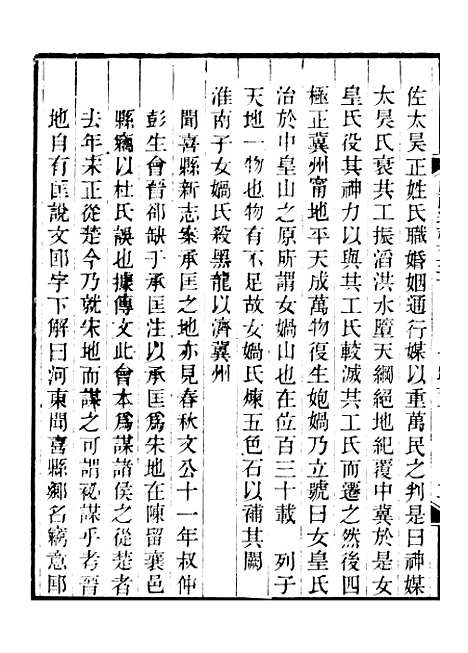 佐太昊正姓氏職婚姻通行媒以重萬民之判是曰神媒
太昊氏衰共工振滔洪水墮天綱絕地紀覆中冀於是女
皇氏役其神力以與共工氏較滅共工氏而遷之然後四
極正冀州甯地平天成萬物復生炮媧乃立號曰女皇氏
治於中皇山之原所謂女媧山也在位百三十載　列子
天地一物也物有不足故女媧氏煉五色石以補其闕
淮南子女媧氏殺黑龍以濟冀州
聞喜縣新志案承匡之地亦見春秋文公十一年叔仲
彭生會晉郤缺于承匡注以承匡爲宋地在陳留襄邑
縣竊以杜氏誤也據傳文此會本爲謀諸侯之從楚者
去年宋正從楚今乃就宋地而謀之可謂祕謀乎考晉
地自有匡說文邼字下解曰河東聞喜縣鄉名竊意邼